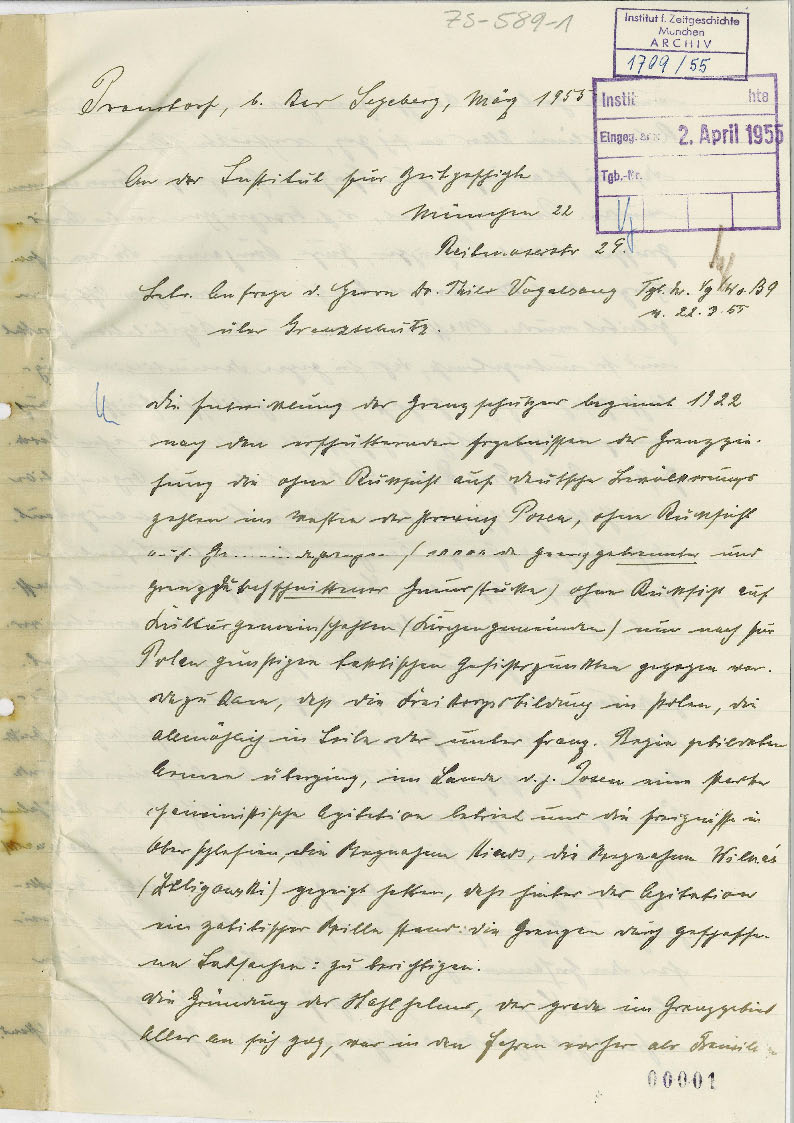 ZS-589-1
Institut f. Zeitgeschichte
München
ARCHIV
1709/55
Instit hte
Eingeg. am 2. April 1955
Tgb.-Nr.
b. Bad Segeberg, März 1955
An das Institut für Zeitgeschichte
München 22
Reitmorerstr 29.
Betr. Anfrage d. Herrn Dr. Thilo Vogelsang Tgb. Nr.
v. 22.3.55
über Grenzschutz.
Die Entwicklung des Grenzschutzes beginnt 1922
nach den erschütternden Ergebnissen der Grenzzie-
hung die ohne Rücksicht auf deutsche Bevölkerungs
zahlen im Westen der Provinz Posen, ohne Rücksicht
auf und
grenzdurchschnittener Grundstücke) ohne Rücksicht auf
Kulturgemeinschaften (Kirchengemeinden) nur nach für
Polen günstigen taktischen Gesichtspunkten gezogen war.
Dazu kam, daß die Freikorpsbildung in Polen, die
allmählich in Teile der unter franz. Regie gebildeten
Armee überging, im Lande d.h. Posen eine starke
chauvinistische Agitation betrieb und die Ereignisse in
Oberschlesien, die Wegnahme Kiews, die Wegnahme Wilnas
gezeigt hatten, daß hinter der Agitation
ein politischer Wille stand: die Grenzen durch geschaffe-
ne Tatsachen: zu berichtigen.
Die Gründung des Stahlhelms, der grade im Grenzgebiet
Alles an sich zog, war in den Jahren vorher als
00001